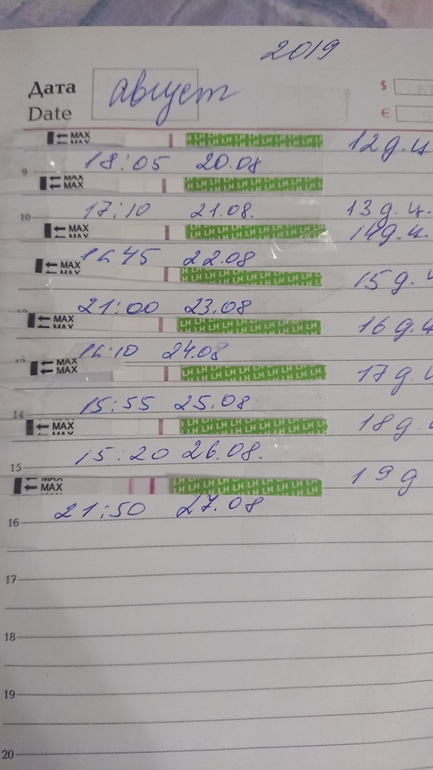 2019
Дата август $
Date €
MAX LH LH LH LH LH LH LH LH 12 д.ц
18:05 20.08
9
MAX LH LH LH LH LH LH LH LH
17:10 21.08. 13 д.ц.
10
MAX LH LH LH LH LH LH LH LH 14 д.ц.
16 45 22.08
MAX LH LH LH LH LH LH LH LH 15 д.ц
21:00 23.08
MAX LH LH LH LH LH LH LH LH 16 д.ц
16:10 24.08
MAX LH LH LH LH LH LH LH LH 17 д.ц
15:55 25.08
14
MAX LH LH LH LH LH LH LH LH 18 д.
15:20 26.08.
15
MAX LH LH LH LH LH LH LH LH 19 д
21:50 27.08
16
17
18
19
20